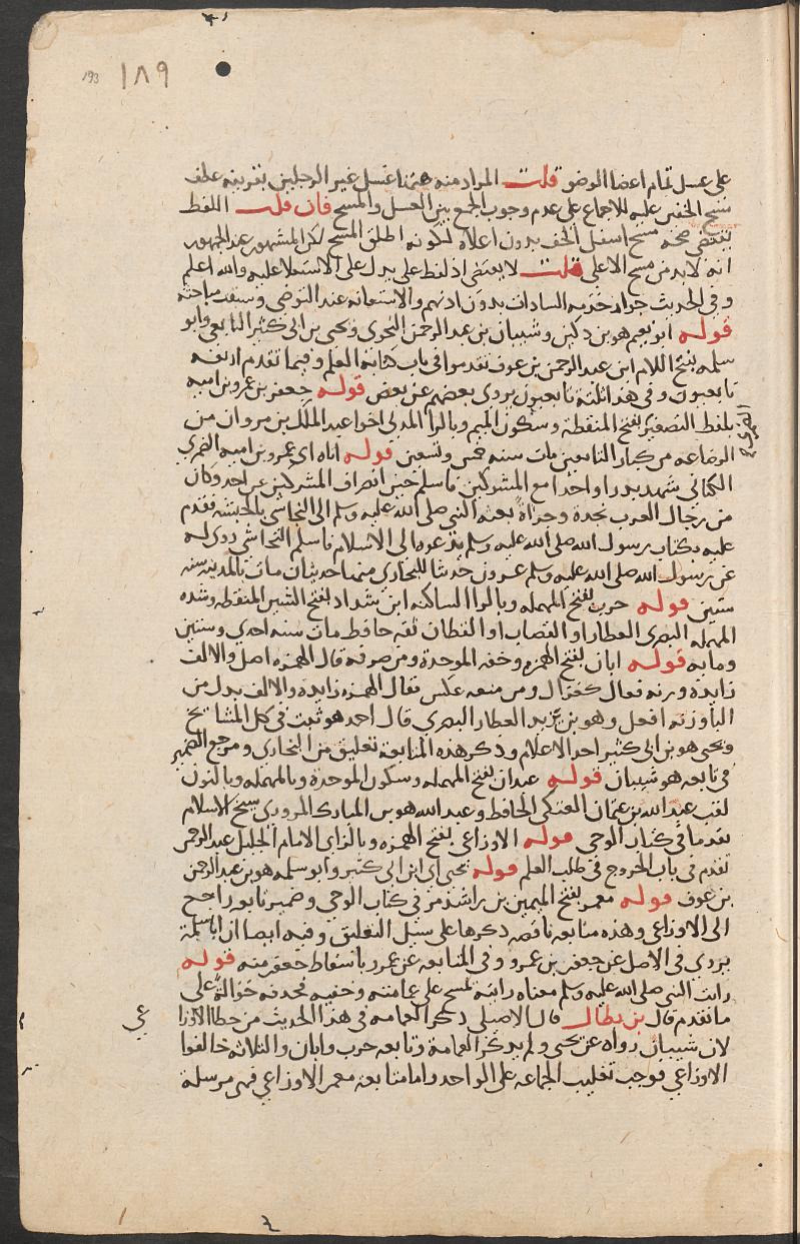 ١٨٩
193
على غسل تمام اعضا الوضو قلت المراد منه ههنا غسل غير الرجلين بقرينه عطف
مسح الخفين عليه للاجماع على عدم وجوب الجمع بين الغسل والمسح فان قلت اللفظ
يقتضي صحه مسح اسفل الخف بدون اعلاه لكونه اطلق المسح لكن المشهور عند الجمهور
انه لابد من مسح الاعلى قلت لا يقتضي اذ لفظ على يدل على الاستعلا عليه والله اعلم
وفي الحديث جواز خدمه السادات بدون اذنهم والاستعانه عند التوضي وسبقت مباحثه
قوله ابو نعيم هو بن دكين وشيبان بن عبد الرحمن النحوي ويحيى بن ابي كثير التابعي وابو
سلمه بفتح اللام ابن عبد الرحمن بن عوف تقدموا في باب كتابة العلم وفيما تقدم اربعه
تابعيون وفي هذا ثلثة تابعيون يروي بعضهم عن بعض قوله جعفر بن عمرو بن اميه
بلفظ التصغير بفتح المنقطة وسكون الميم وبالرا المدني اخو عبد الملك بن مروان من
الضمري
الرضاعه من كبار التابعين مات سنه خمس وتسعين قوله اباه اي عمرو بن اميه الضمري
الكناني شهد بدرا واحدا مع المشركين فاسلم حين انصراف المشركين عن احد وكان
من رجال العرب نجدة وجراة بعثه النبي صلى الله عليه وسلم الى النجاشي بالحبشه فقدم
عليه بكتاب رسول الله صلى الله عليه وسلم يدعوه الى الاسلام فاسلم النجاشي روى له
عن رسول الله صلى الله عليه وسلم عشرون حديثا للبخاري منها حديثان مات بالمدينه سنه
ستين قوله حرب بفتح المهمله وبالرا الساكنه ابن شداد بفتح الشين المنقطه وشده
المهمله البصري العطار او القصاب او القطان ثقه حافظ مات سنه احدي وستين
ومايه قوله ابان بفتح الهمزه وخفه الموحدة ومن صرفه قال الهمزه اصل والالف
زايدة وزنه فعال كغزال ومن منعه عكس فقال الهمزه زايدة والالف بدل من
اليا وزنه افعل وهو بن يزيد العطار البصري قال احمد هو ثبت في كل المشايخ
ويحيى هو بن ابي كثير احد الاعلام وذكر هذه المتابعة تعليق من البخاري ومرجع الضمير
في تابعه هو شيبان قوله عبدان بفتح المهمله وسكون الموحدة وبالمهمله وبالنون
لقب عبد الله بن عثمان العتكي الحافظ وعبد الله هو بن المبارك المروزي شيخ الاسلام
تقدما في كتاب الوحي قوله الاوزاعي بفتح الهمزه وبالزاي الامام الجليل عبد الرحمن
تقدم في باب الخروج في طلب العلم قوله يحيى اي ابن ابي كثير وابو سلمه هو بن عبد الرحمن
بن عوف قوله معمر بفتح الميمين بن راشد مر في كتاب الوحي وضمير تابعه راجع
الى الاوزاعي وهذه متابعه ناقصه ذكرها على سبيل التعليق وفيه ايضا ان ابا سلمة
يروي في الاصل عن جعفر بن عمرو وفي المتابعه عن عمرو باسقاط جعفر منه قوله
رايت النبي صلى الله عليه وسلم معناه رايته يمسح على عمامته وخفيه فحذفه حوالة على
ما تقدم قال بن بطال قال الاصيلي ذكر العمامه في هذا الحديث من خطا الاوزا
عي
لان شيبان رواه عن يحيى ولم يذكر العمامة وتابعه حرب وابان والثلاثه خالفوا
الاوزاعي فوجب تغليب الجماعه على الواحد واما متابعه معمر الاوزاعي فهي مرسلة